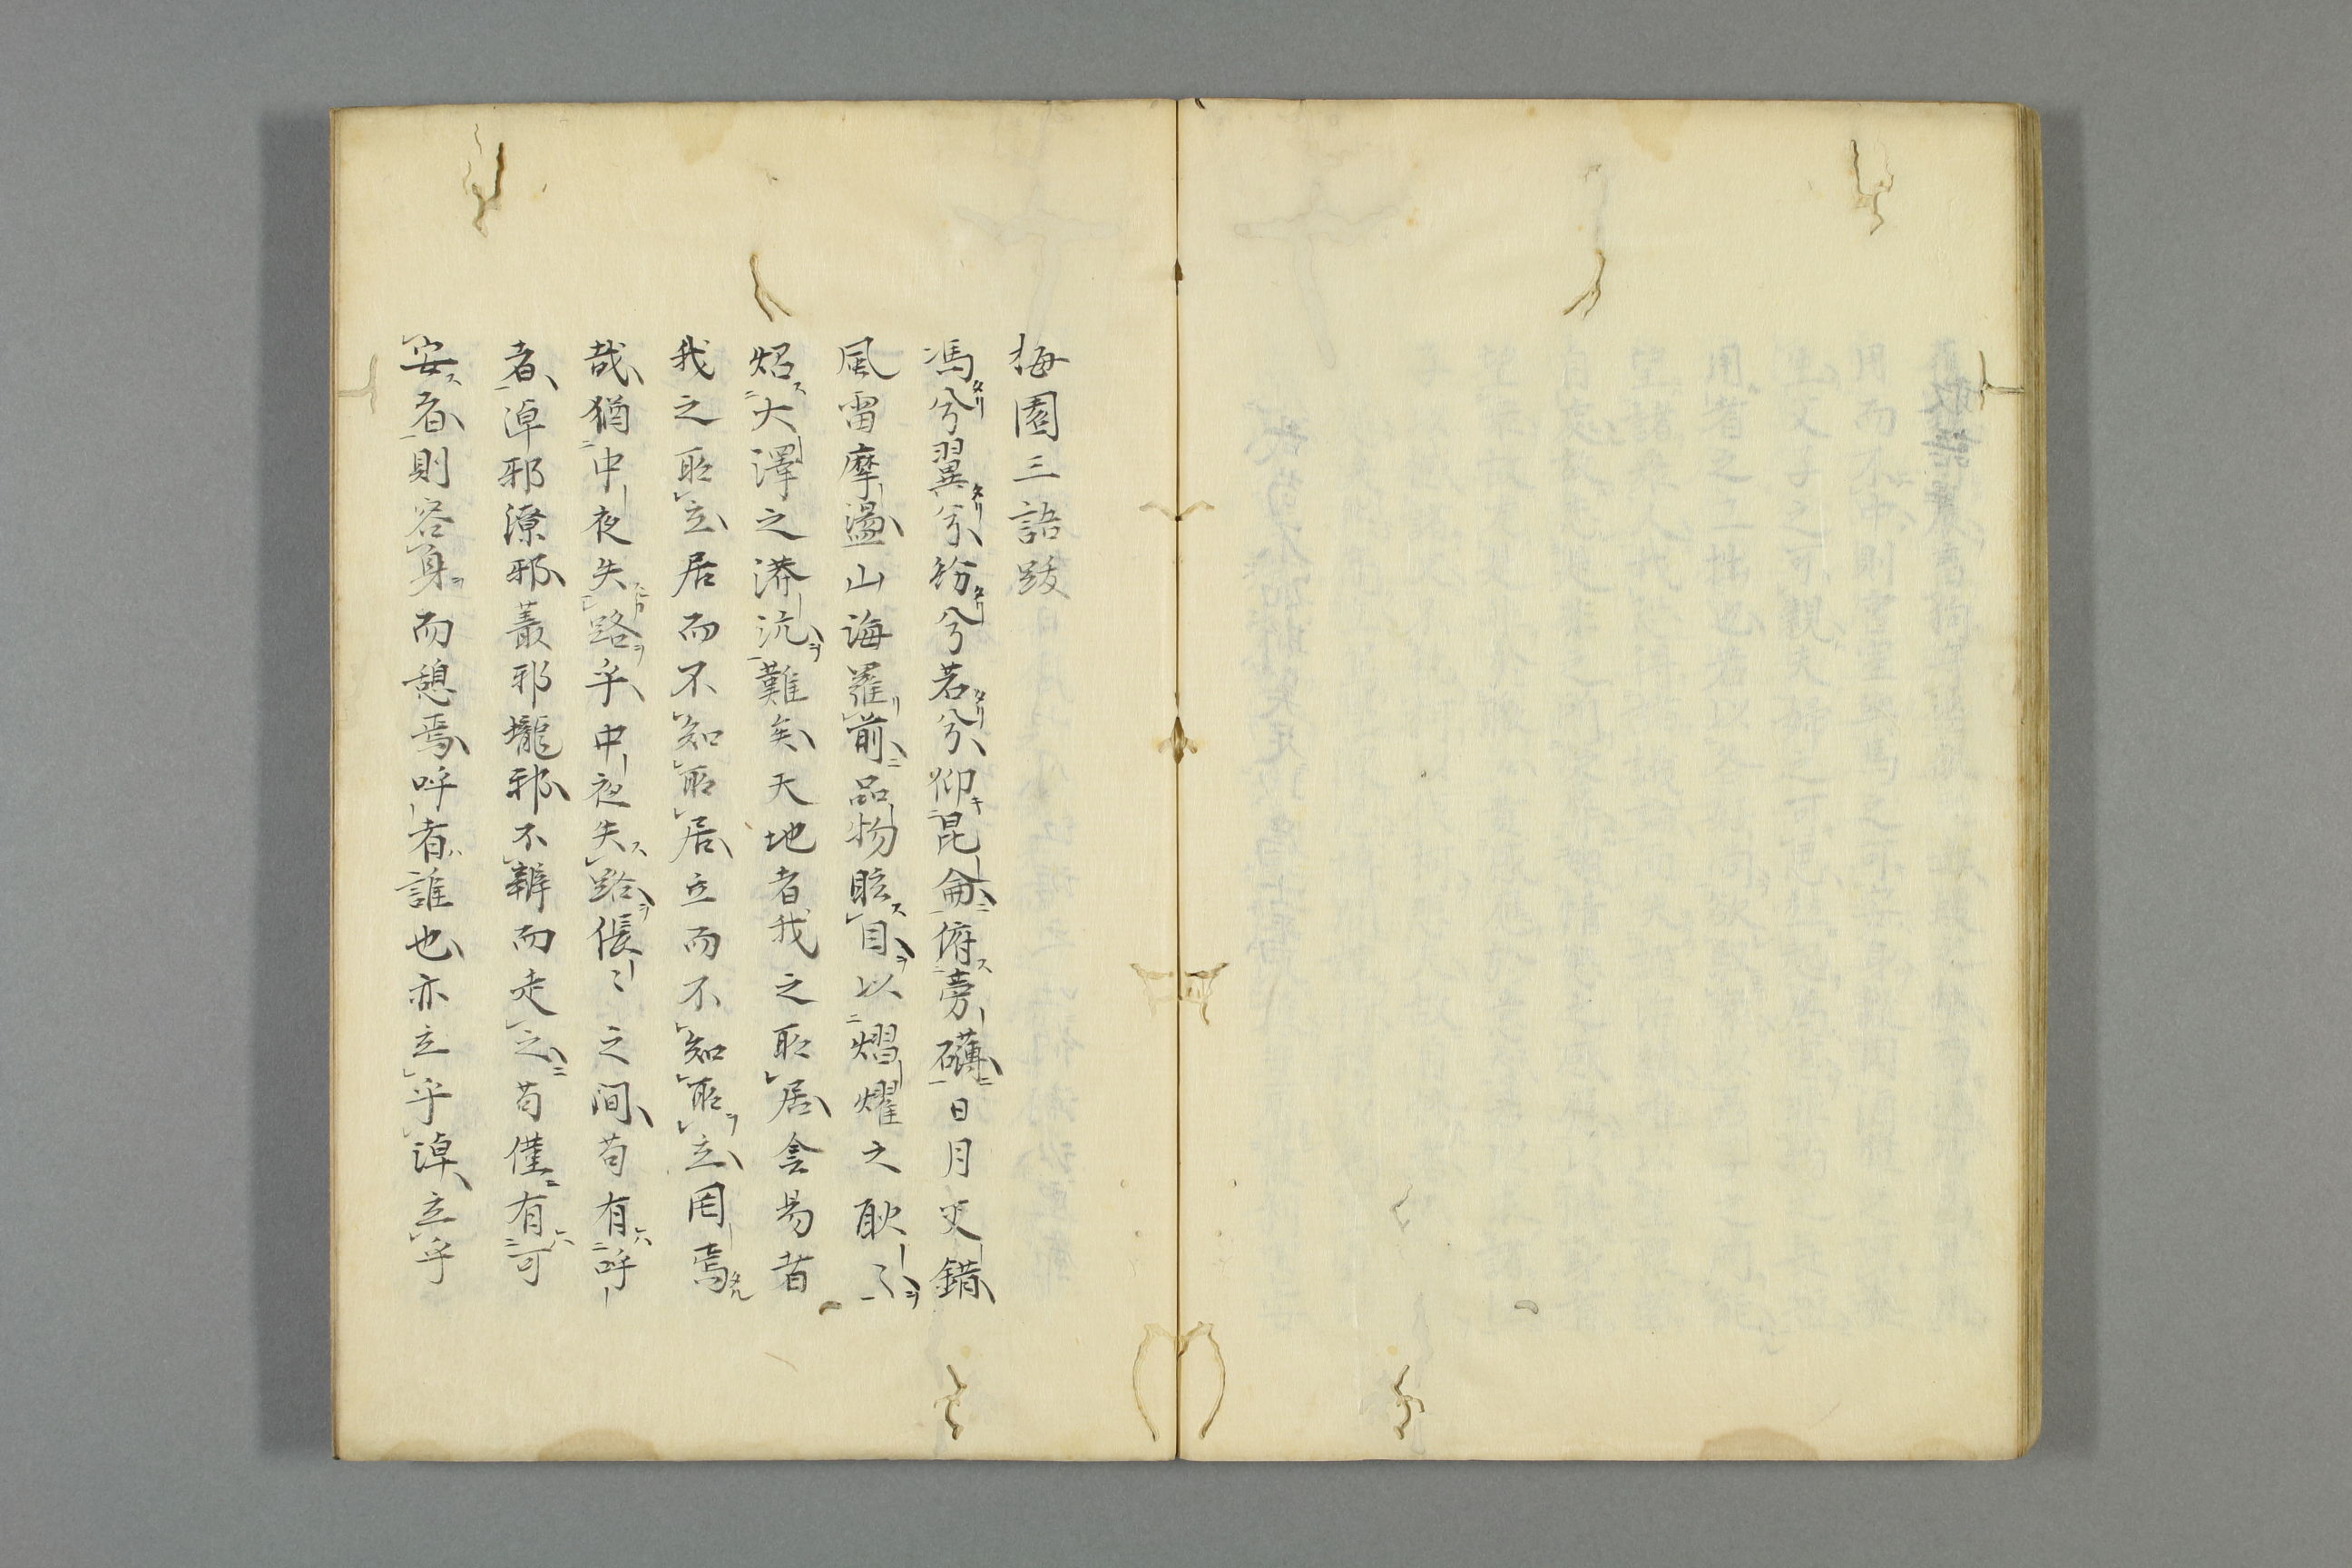 梅園三語跋
馮兮翼兮紛兮若兮仰昆侖俯旁礴日月更錯
風雷摩盪山海羅前品物眩目以熠燿之耿〻
炤大澤之漭沆難矣天地者我之所居侌昜者
我之所立居而不知所居立而不知所立罔焉
哉猶中夜失路乎中夜失路倀〻之間苟有呼
者淖邪潦邪叢邪壠邪不辨而走之苟僅有可
安者則容身而憩焉呼者誰也亦立乎淖立乎